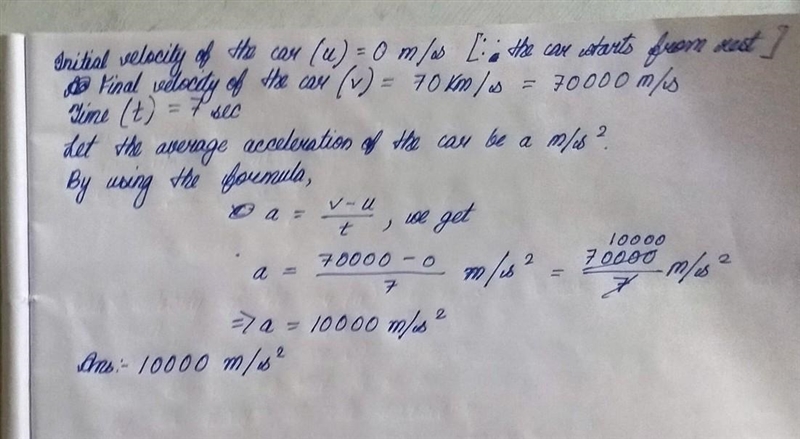 Initial velocity of the car (u) = 0 m/s [∵ the car starts from rest]
Final velocity of the car (v) = 70 Km/s = 70000 m/s
Time (t) = 7 sec
Let the average acceleration of the car be a m/s².
By using the formula,
a = (v-u)/t, we get
a = (70000 - 0)/7 m/s² = 70000/7 m/s² 10000
⇒ a = 10000 m/s²
Ans:- 10000 m/s²